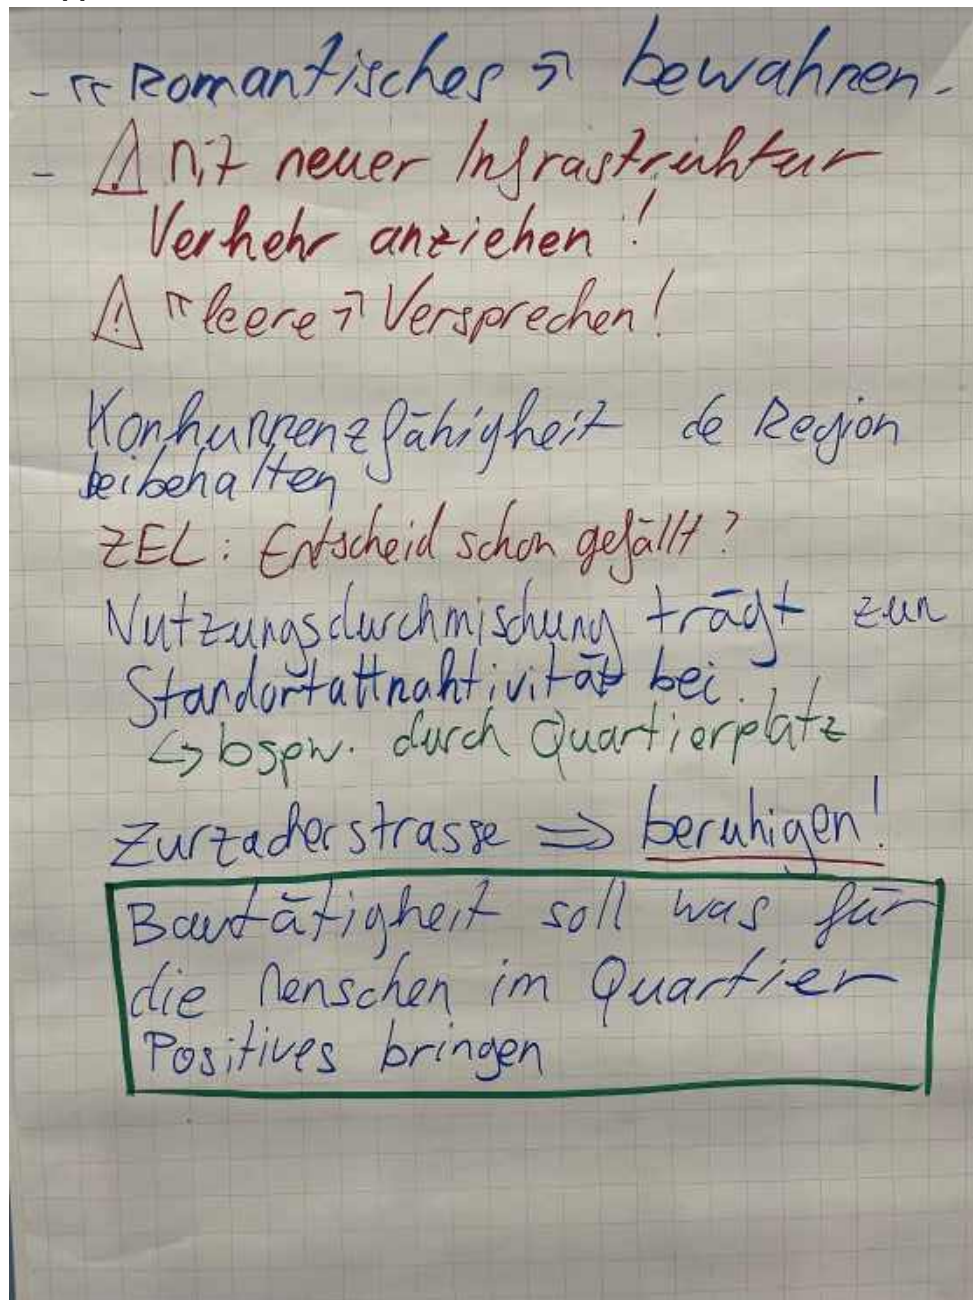 - «Romantisches» bewahren.
- ⚠ Mit neuer Infrastruktur
Verkehr anziehen!
⚠ «leere» Versprechen!
Konkurrenzfähigkeit de Region
beibehalten
ZEL: Entscheid schon gefällt?
Nutzungsdurchmischung trägt zur
Standortattraktivität bei
↳ bspw. durch Quartierplatz
Zurzacherstrasse ⇒ beruhigen!
Bautätigkeit soll was für
die Menschen im Quartier
Positives bringen